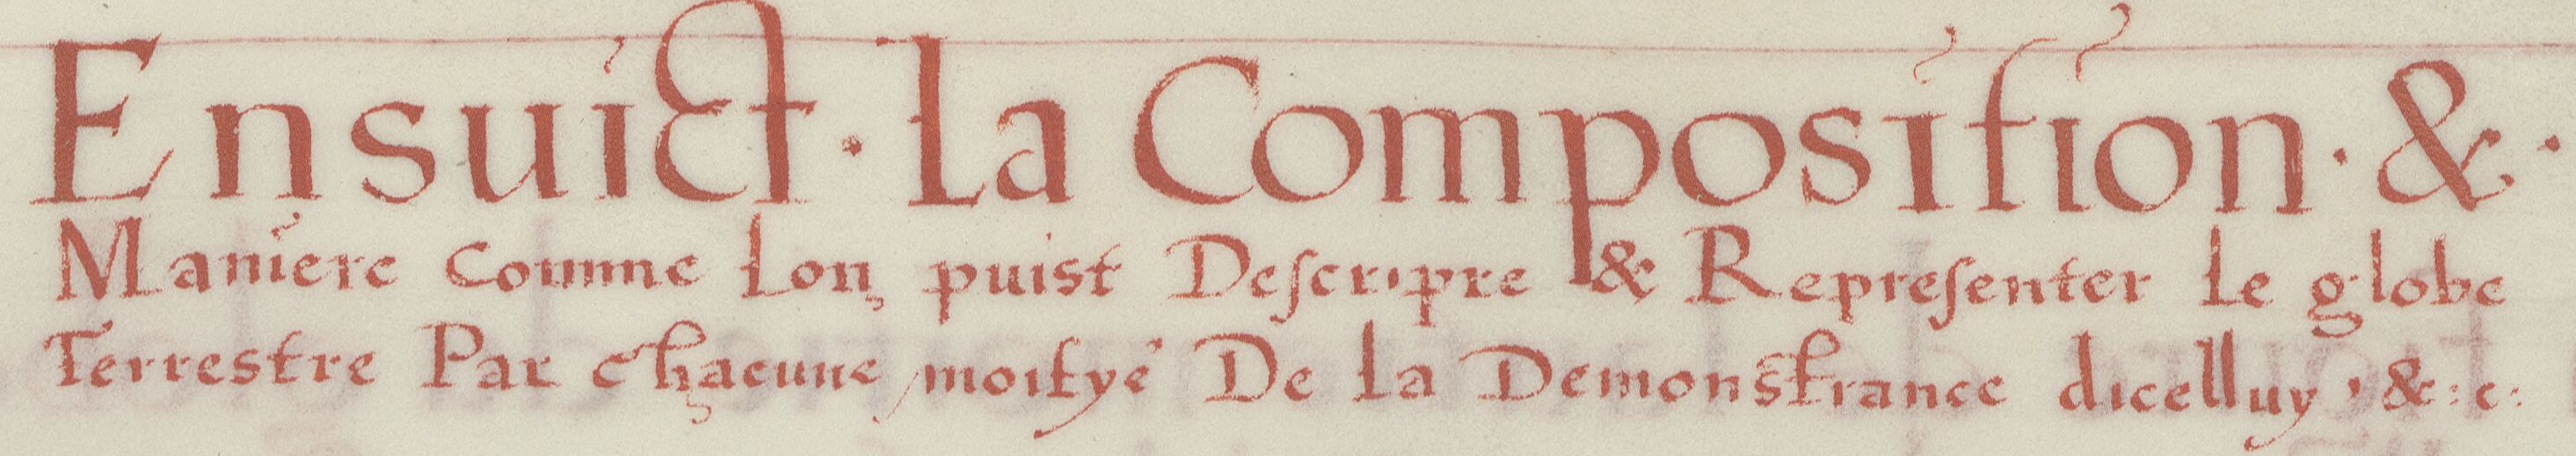 Ensuict · la Composition · & ·
Maniere comme lon puist Descripre & Representer le globe
Terrestre Par chacune moitye De la Demonstrance dicelluy , & : c :